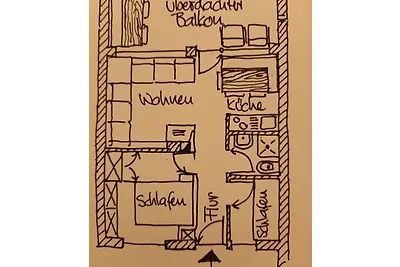 Überdachter
Balkon
Wohnen
Küche
Schlafen
Flur
Schlafen